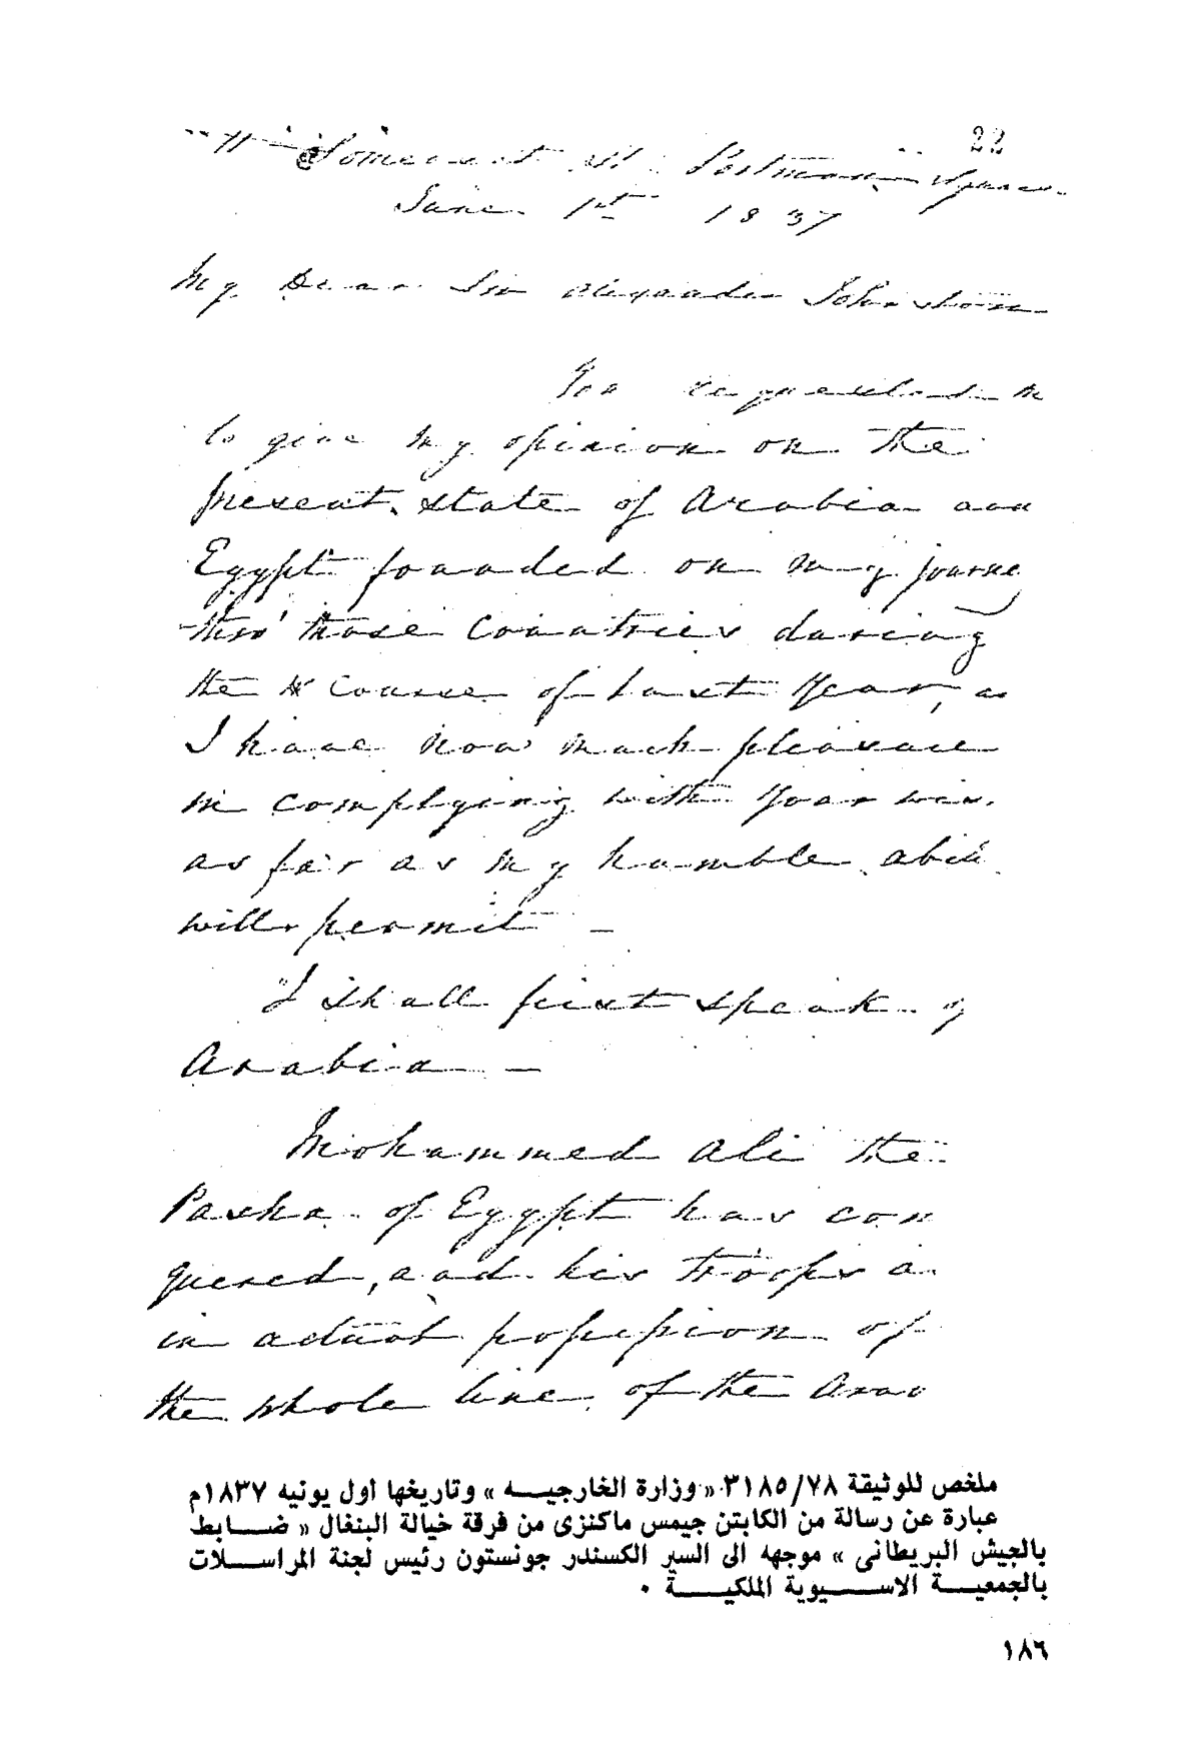 22
Somerset St. Portman Square
June 1st 1837
My Dear Sir Alexander Johnstone
You requested m
to give my opinion on the
present state of Arabia and
Egypt founded on my journe
thro' those Countries during
the Course of last Year,
I have now much pleasure
in complying with Your wis
as far as my humble abili
will permit —
I shall first speak of
Arabia —
Mohammed Ali the
Pasha of Egypt has con
quered, and his troops a
in actual possession of
the whole line of the Arab
ملخص للوثيقة ٣١٨٥/٧٨ «وزارة الخارجيـــه» وتاريخها أول يونيه ١٨٣٧م
عبارة عن رسالة من الكابتن جيمس ماكنزى من فرقة خيالة البنغال « ضــــابط
بالجيش البريطانى » موجهه الى السير الكسندر جونستون رئيس لجنة المراســـلات
بالجمعيـــة الاســـيوية الملكيـــة ٠
١٨٦